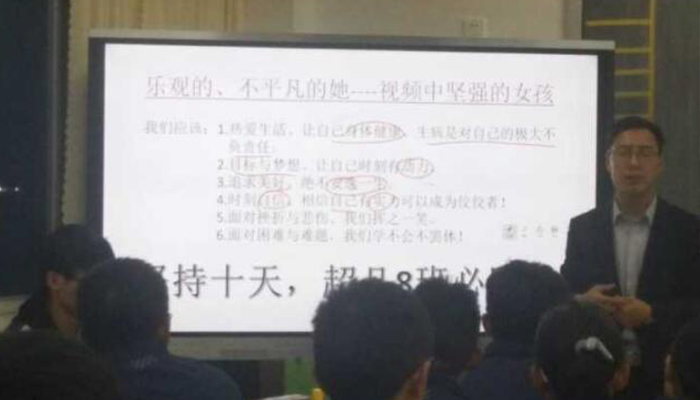 乐观的、不平凡的她----视频中坚强的女孩
我们应该：1.热爱生活，让自己身体健康，生病是对自己的极大不
负责任.
2.目标与梦想，让自己时刻有活力
3.追求美好，绝不一生
4.时刻自信，相信自己有实力可以成为佼佼者！
5.面对挫折与悲伤，我们挥之一笑。
6.面对困难与难题，我们学不会不罢休！
坚持十天，超凡8班必